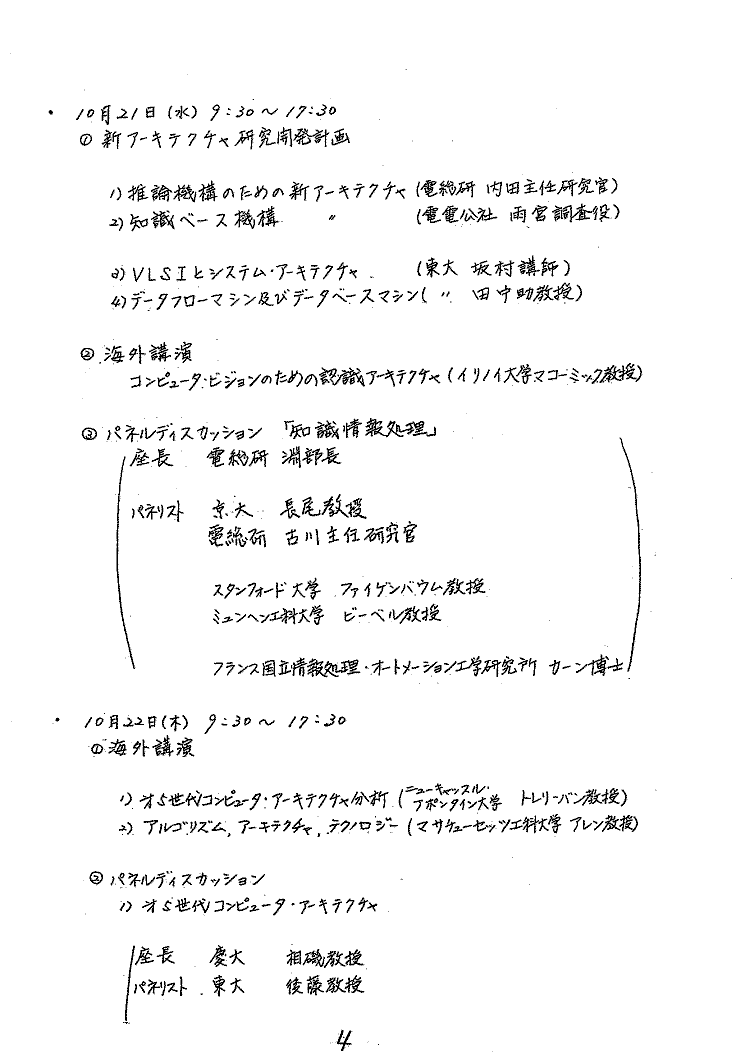 ・ 10月21日(水) 9:30〜17:30
① 新アーキテクチャ研究開発計画
1) 推論機構のための新アーキテクチャ (電総研 内田主任研究官)
2) 知識ベース機構 〃 (電電公社 雨宮調査役)
3) VLSIとシステム・アーキテクチャ (東大 坂村講師)
4) データフローマシン及びデータベースマシン( 〃 田中助教授)
② 海外講演
コンピュータ・ビジョンのための認識アーキテクチャ (イリノイ大学マコーミック教授)
③ パネルディスカッション 「知識情報処理」
座長 電総研 淵部長
パネリスト 京大 長尾教授
電総研 古川主任研究官
スタンフォード大学 ファイゲンバウム教授
ミュンヘン工科大学 ビーベル教授
フランス国立情報処理・オートメーション工学研究所 カーン博士
・ 10月22日(木) 9:30〜17:30
① 海外講演
1) 才5世代コンピュータ・アーキテクチャ分析 (ニューキャッスル・アポンタイン大学 トレリーバン教授)
2) アルゴリズム, アーキテクチャ, テクノロジー (マサチューセッツ工科大学 アレン教授)
② パネルディスカッション
1) 才5世代コンピュータ・アーキテクチャ
座長 慶大 相磯教授
パネリスト 東大 後藤教授
4